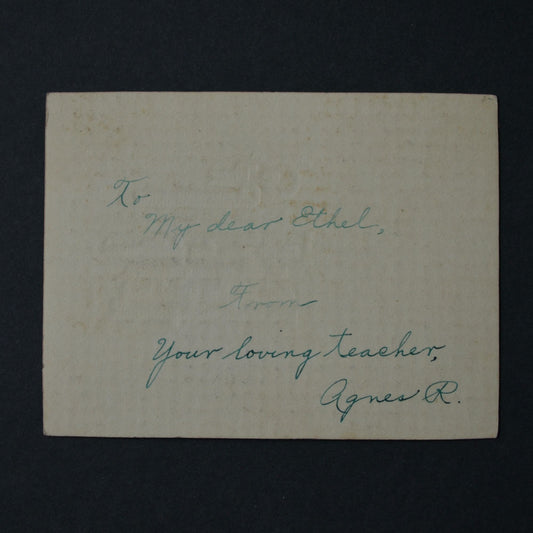 To
My dear Ethel,
From
Your loving teacher,
Agnes R.